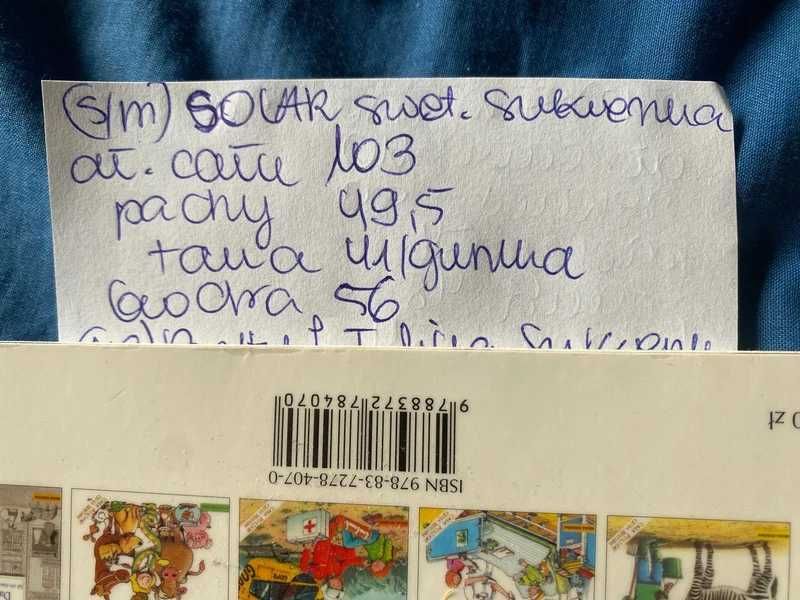 (S/M) SOLAR swet. sukienka
dł. całk 103
pachy 49,5
talia 41/gumka
biodra 56
9 788372 784070
ISBN 978-83-7278-407-0
0 zł